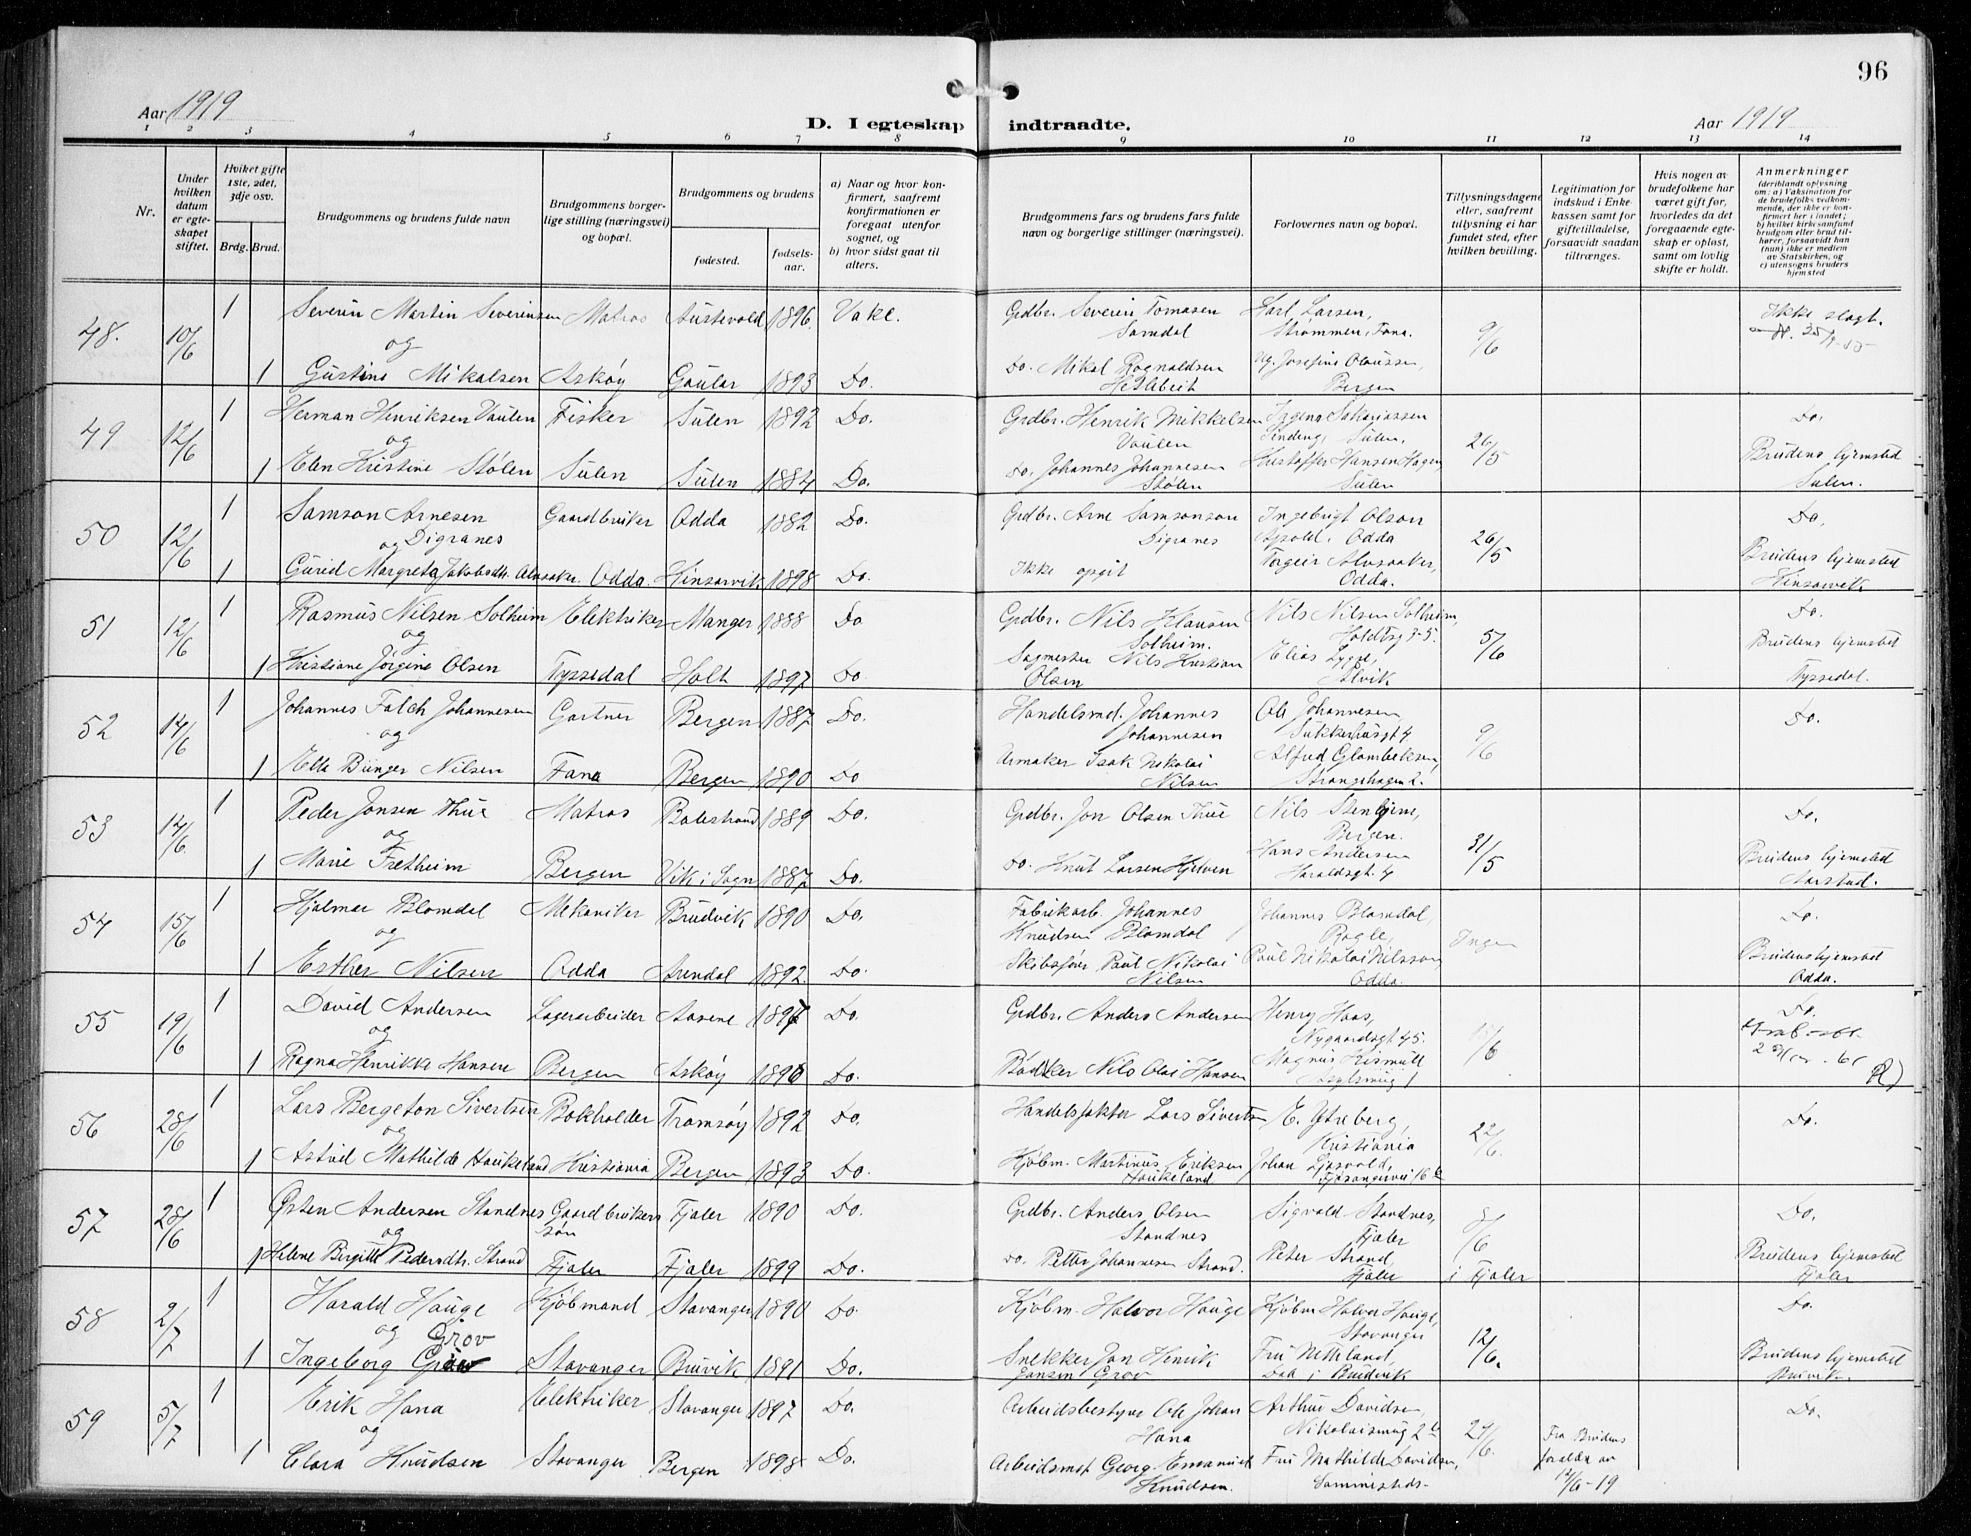 96
Aar 1919
D. I egteskap indtraadte.
Aar 1919
1 2 3 4 5 6 7 8 9 10 11 12 13 14
Nr.
Under hvilken datum er egteskapet stiftet.
Hvilket gifte 1ste, 2det, 3dje osv.
Brdg. Brud.
Brudgommens og brudens fulde navn
Brudgommens borgerlige stilling (næringsvei) og bopæl.
Brudgommens og brudens
fødested.
fødselsaar.
a) Naar og hvor konfirmert, saafremt konfirmationen er foregaat utenfor sognet, og
b) hvor sidst gaat til alters.
Brudgommens fars og brudens fars fulde navn og borgerlige stillinger (næringsvei).
Forlovernes navn og bopæl.
Tillysningsdagene eller, saafremt tillysning ei har fundet sted, efter hvilken bevilling.
Legitimation for indskud i Enkekassen samt for giftetilladelse, forsaavidt saadan tiltrænges.
Hvis nogen av brudefolkene har været gift før, hvorledes da det foregaaende egteskap er opløst, samt om lovlig skifte er holdt.
Anmerkninger
(deriblandt oplysning om: a) Vaksination for de brudefolks vedkommende, der ikke er konfirmert her i landet; b) hvilket kirkesamfund brudgom eller brud tilhører, forsaavidt han (hun) ikke er medlem av Statskirken, og c) utensogns bruders hjemsted
48. 10/6 1 Severin Martin Severinsen Matros Austevold 1896 Va kl. Grdbr. Severin Tomasen Karl Larsen, 9/6 Ikke slagt.
og Samdal Strømmen, Fana.
1 Gustine Mikalsen Askøy Gaular 1893 Do. Do. Mikal Ragnaldsen Ug. Josefine Olaussen
Bergen
49 12/6 1 Herman Henriksen Vaulen Fisker Sulen 1892 Do. Grdbr. Henrik Mikkelsen 26/5 Do.
og Vaulen Sulen. Brudens hjemsted
1 Elen Kristine Stølen Sulen Sulen 1884 Do. Do. Johannes Johannesen Kristoffer Hansen Hagen
Stølen Sulen Sulen.
50 12/6 1 Samson Arnesen Gaardbruker Odda 1882 Do. Grdbr. Arne Samsonson Ingebrigt Olson 26/5 Do.
og Digranes Digranes Apold, Odda Brudens hjemsted
1 Gurid Margreta Jakobsdtr. Alvsaker Odda. Kinsarvik 1898 Do. Ikke opgit Torgeir Alvsaaker,
Odda. Kinsarvik
51 12/6 1 Rasmus Nilsen Solheim Elektriker Manger 1888 Do Grdbr. Nils Klausen Nils Nilsen Solheim, 5/6 Do.
og Solheim. Brudens hjemsted
1 Kristiane Jörgine Olsen Tyssedal Holt 1897 Do. Sagmester Nils Kristian Elias Lygre,
Olsen Ålvik Tyssedal.
52 14/6 1 Johannes Falch Johannesen Gartner Bergen 1887 Do. Handelsmd. Johannes Ole Johannesen 9/6 Do.
og Johannesen Sukkerhusgt 4
1 Ella Bünger Nilsen Fana Bergen 1890 Do Urmaker Isak Nikolai Alfred Glambeksen,
Nilsen Strangehagen 2.
53 14/6 1 Peder Jonsen Thue Matros Balestrand 1889 Do. Grdbr. Jon Olsen Thue Nils Stenhjem, 31/5 Do.
og Bergen.
1 Marie Fretheim Bergen Vik i Sogn 1887 Do. Do. Knut Larsen Hjelven Hans Andersen Brudens hjemsted
Haraldsgt. 4 Aarstad.
54 15/6 1 Hjalmar Blomdal Mekaniker Brudvik 1890 Do. Fabrikarb. Johannes Johannes Blomdal, Ingen Do.
og Knudsen Blomdal
1 Esther Nilsen Odda Arendal 1892. Do. Skibsfører Paul Nikolai Paul Nikolai Nilsson, Brudens hjemsted
Nilsen Odda. Odda.
55 19/6 1 David Andersen Lagerarbeider Aasene 1897 Do. Grdbr. Anders Andersen Henry Haas, Do.
og Nygaardsgt 45.
1 Ragna Henrikke Hansen Bergen Askøy 1896 Do. Bødker Nils Olai Hansen
56 28/6 1 Lars Bergeton Sivertsen Bokholder Tromsøy 1892 Do. Handelsfakter Lars Sivertsen E. Ytreberg, 22/6. Do.
og Kristiania
1 Astrid Mathilde Haukeland Kristiania Bergen 1893 Do. Kjøbm. Martinus Eriksen
Haukeland Fjøsangervei 16 b
57 28/6 1 Østen Andersen Standnes Gaardbrukers Fjaler 1890 Do. Grdbr. Anders Olsen Sigvald Standnes, 8/6 Do.
og søn Standnes Fjaler
1 Helene Birgitte Pedersdtr. Strand Fjaler Fjaler 1899 Do. Do. Petter Johannesen Strand. Peter Strand, Brudens hjemsted
Fjaler i Fjaler Fjaler
58 2/7 1 Harald Hauge Kjøbmand Stavanger 1890 Do. Kjøbm. Halvor Hauge Kjøbm Halvor Hauge, 12/6. Do.
og Grov Stavanger
1 Ingeborg Stavanger Bruvik 1891 Do. Snekker Jon Henrik Fru Netteland, Brudens hjemsted
Jansen Grov Dale i Brudvik Bruvik.
59 5/7 1 Erik Hana Elektriker Stavanger 1897 Do. Arbeidsbestyrer Ole Johan Arthur Davidsen, 27/6. Do.
og Hana Nikolaismug 2 b Fra Brudens
1 Clara Knudsen Stavanger Bergen 1898 Do. Arbeidsmd. Georg Emanuel Fru Mathilde Davidsen, forældre av
Knudsen. Sammesteds. 12/6-19